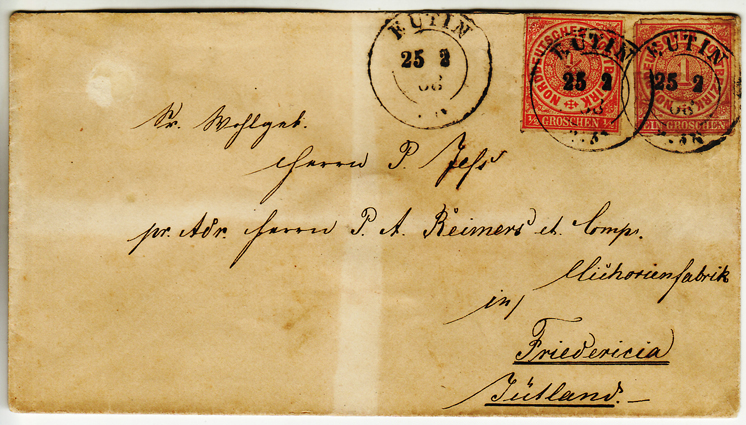 EUTIN
25 2
68
EUTIN
25 2
68
EUTIN
25 2
68
NORDDEUTSCHER POSTBEZIRK
½ GROSCHEN ½
NORDDEUTSCHER POSTBEZIRK
1
EIN GROSCHEN
Sr. Wohlgeb.
Herrn P. Jess
pr. Adr. Herrn P. A. Reimers et Comp.
Cichorienfabrik
in
Friedericia
Jütland.